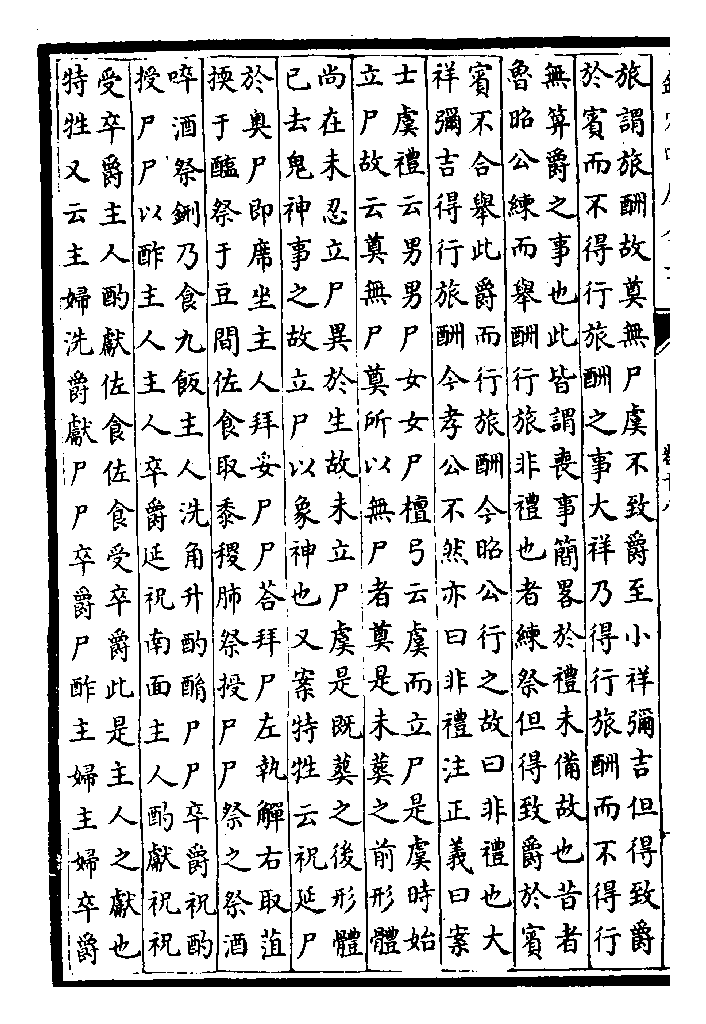 旅謂旅酬故奠無尸虞不致爵至小祥彌吉但得致爵
於賓而不得行旅酬之事大祥乃得行旅酬而不得行
無算爵之事也此皆謂喪事簡畧於禮未備故也昔者
魯昭公練而舉酬行旅非禮也者練祭但得致爵於賓
賓不合舉此爵而行旅酬今昭公行之故曰非禮也大
祥彌吉得行旅酬今孝公不然亦曰非禮注正義曰案
士虞禮云男男尸女女尸檀弓云虞而立尸是虞時始
立尸故云奠無尸奠所以無尸者奠是未葬之前形體
尚在未忍立尸異於生故未立尸虞是既葬之後形體
已去鬼神事之故立尸以象神也又案特牲云祝延尸
於奧尸即席坐主人拜妥尸尸荅拜尸左執觶右取菹
㨎于醢祭于豆間佐食取黍稷肺祭授尸尸祭之祭酒
啐酒祭鉶乃食九飯主人洗角升酌酳尸尸卒爵祝酌
授尸尸以酢主人主人卒爵延祝南面主人酌獻祝祝
受卒爵主人酌獻佐食佐食受卒爵此是主人之獻也
特牲又云主婦洗爵獻尸尸卒爵尸酢主婦主婦卒爵